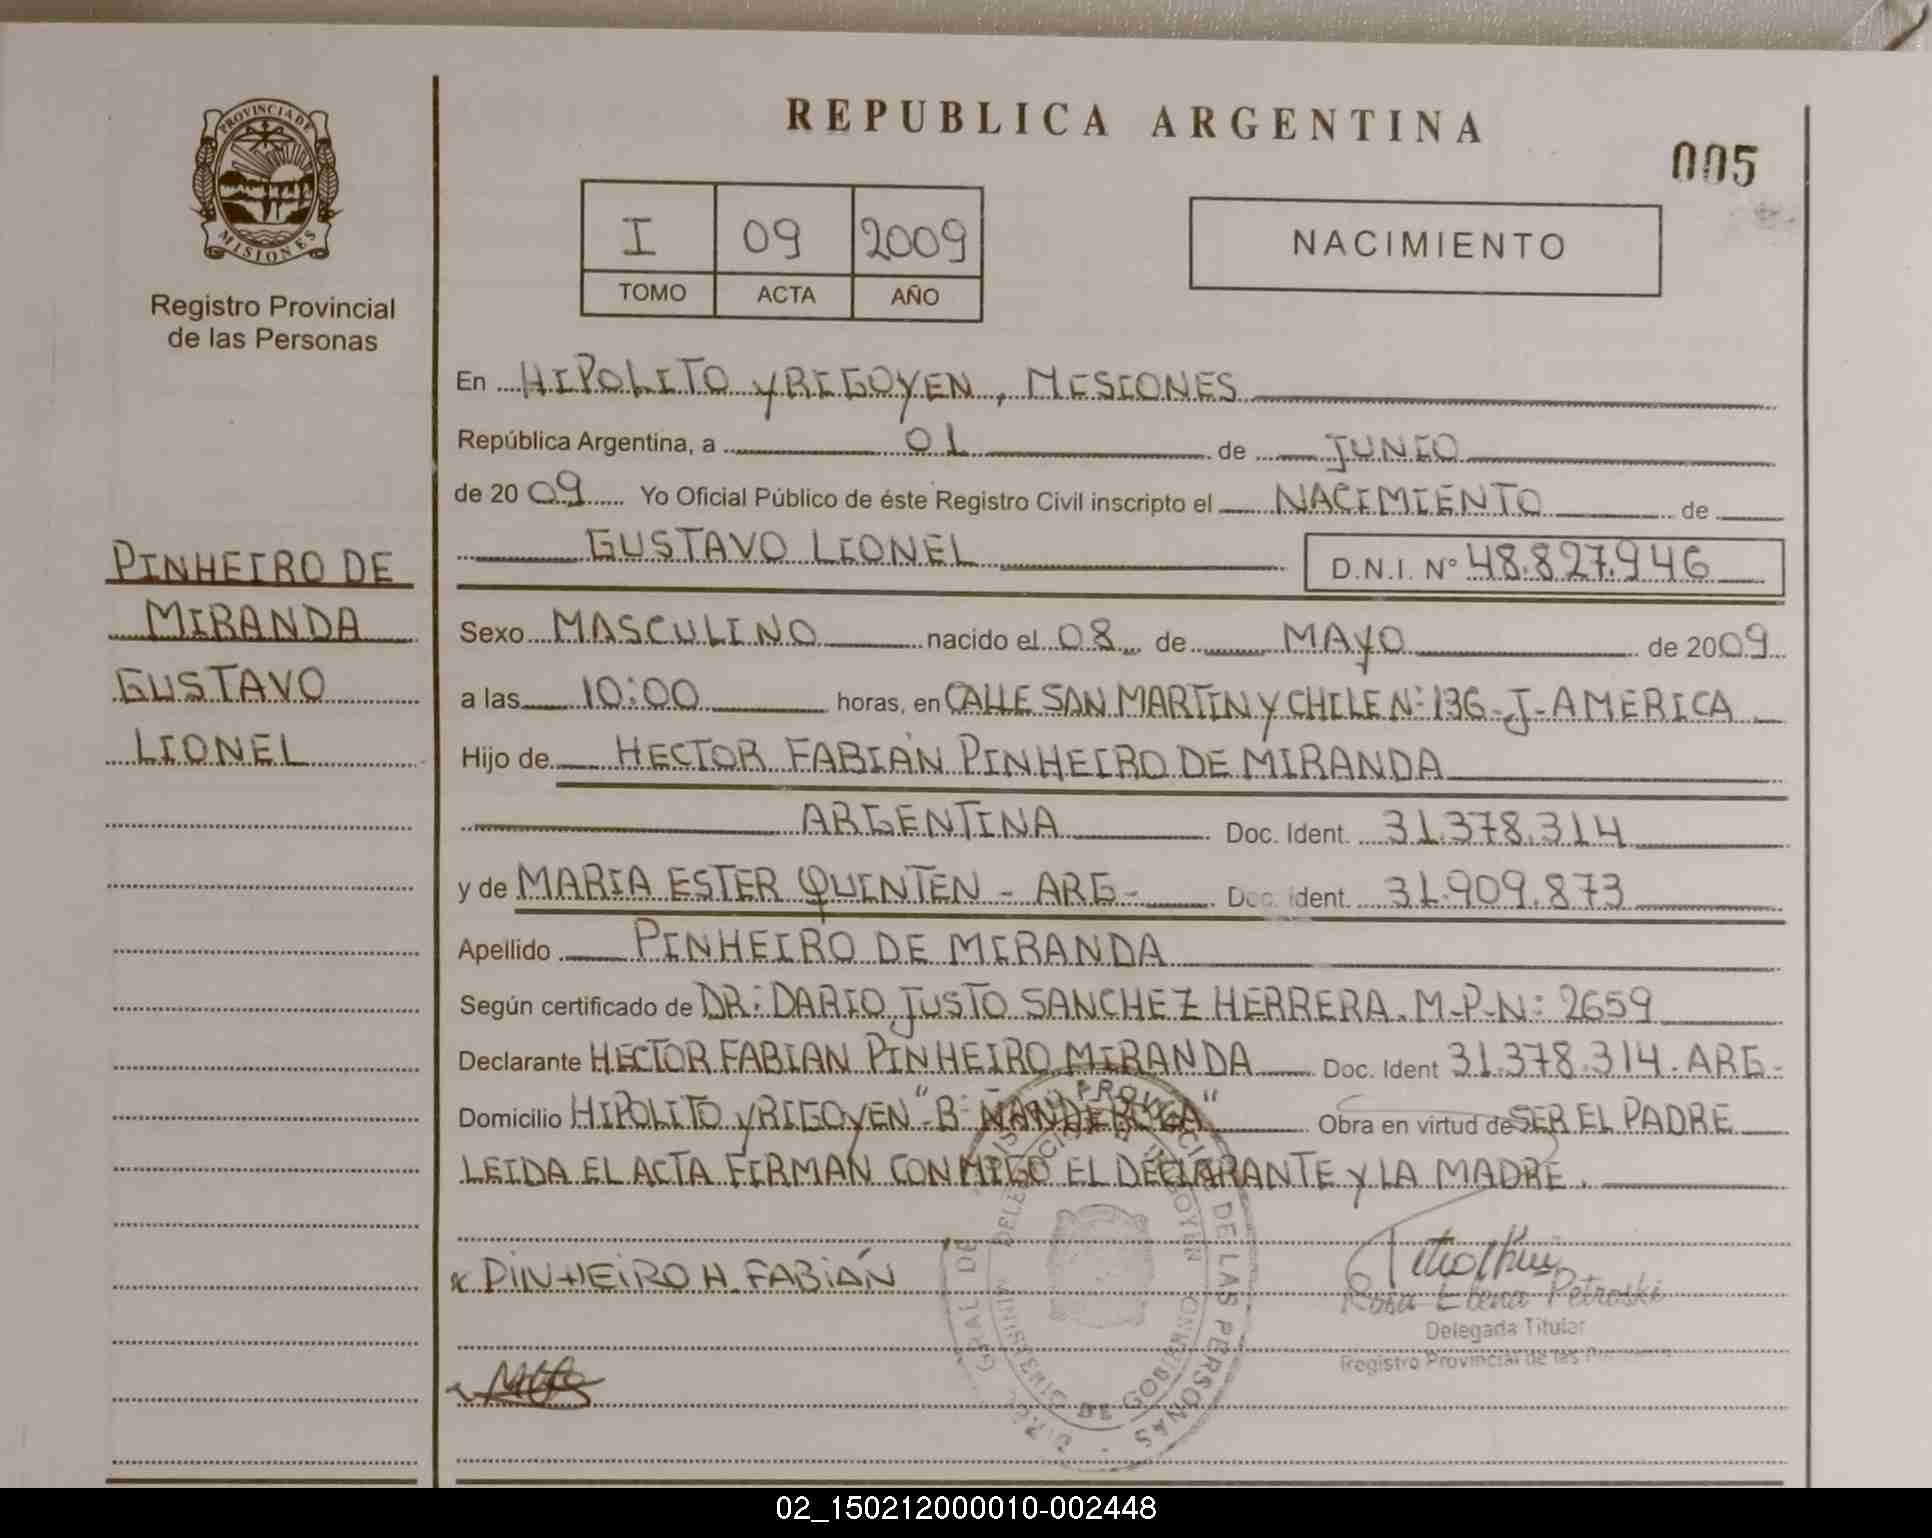 PROVINCIA DE
MISIONES
Registro Provincial
de las Personas
REPUBLICA ARGENTINA
005
I 09 2009
TOMO ACTA AÑO
NACIMIENTO
En HIPOLITO YRIGOYEN, MISIONES
República Argentina, a 01 de JUNIO
de 2009 Yo Oficial Público de éste Registro Civil inscripto el NACIMIENTO de
GUSTAVO LIONEL D.N.I. N° 48.827.946
PINHEIRO DE
MIRANDA
GUSTAVO
LIONEL
Sexo MASCULINO nacido el 08 de MAYO de 2009
a las 10:00 horas, en CALLE SAN MARTIN Y CHILE N: 136-J-AMERICA
Hijo de HECTOR FABIÁN PINHEIRO DE MIRANDA
ARGENTINA Doc. Ident. 31.378.314
y de MARIA ESTER QUINTEN - ARG- Doc. Ident. 31.909.873
Apellido PINHEIRO DE MIRANDA
Según certificado de DR: DARIO JUSTO SANCHEZ HERRERA. M-P-N: 2659
Declarante HECTOR FABIAN PINHEIRO MIRANDA Doc. Ident 31.378.314. ARG-
Domicilio HIPOLITO YRIGOYEN "B: Obra en virtud de SER EL PADRE
LEIDA EL ACTA FIRMAN CONMIGO EL DECLARANTE Y LA MADRE.
PINHEIRO H. FABIÁN
Rosa Elena Petroski
Delegada Titular
Registro Provincial de las
DE LAS PERSONAS
DE GOBIERNO
02_150212000010-002448